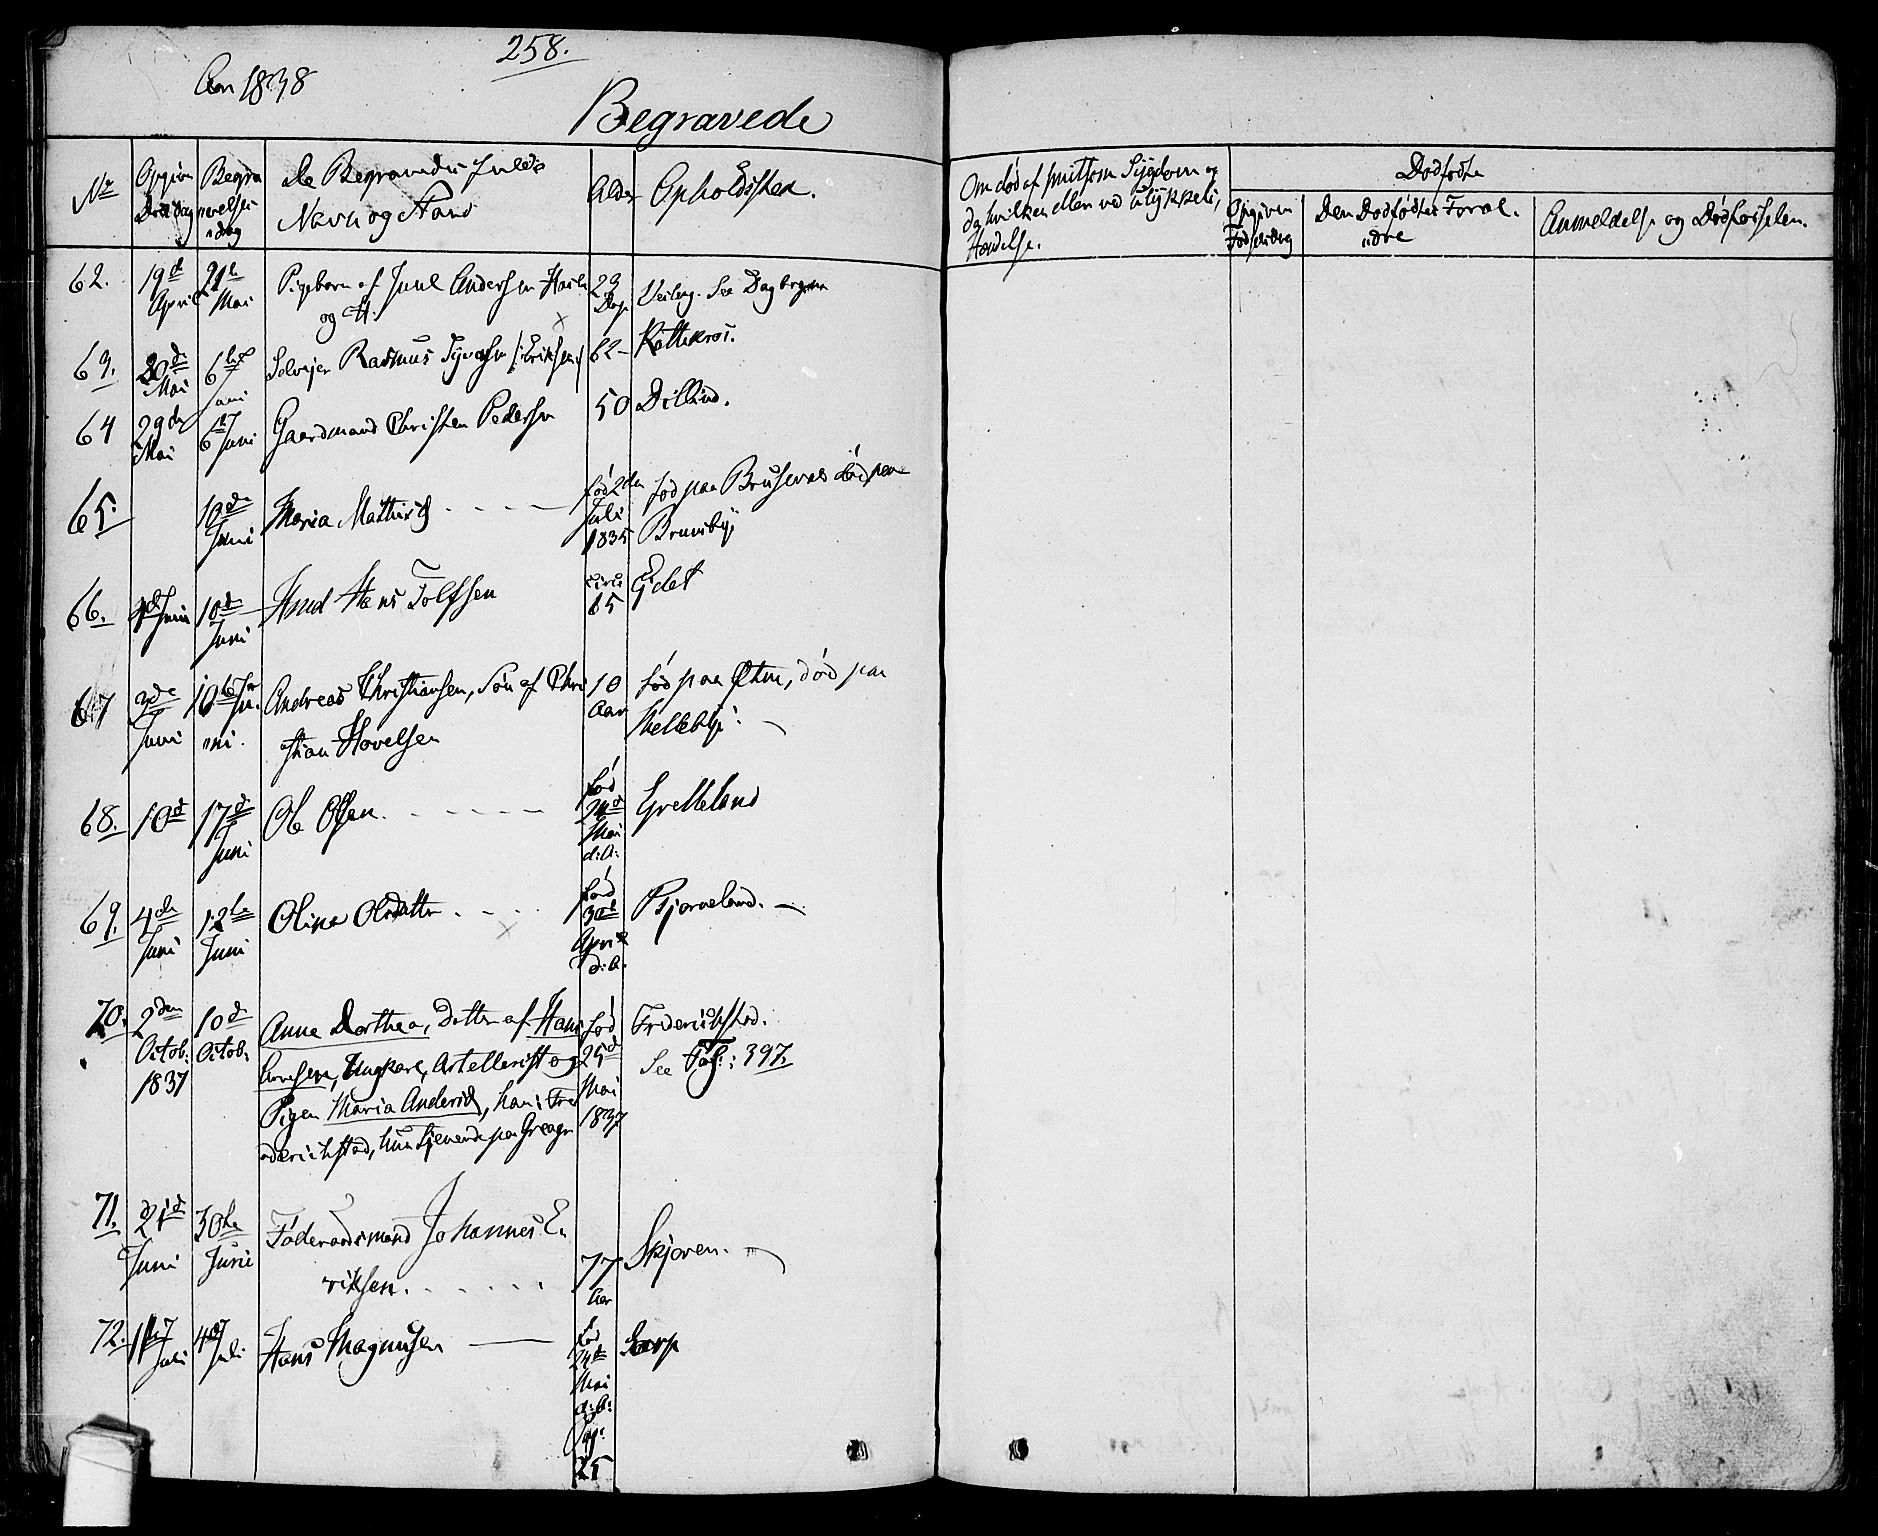 258.
Aar 1838
Begravede
No
Opgiven Dødsdag
Begravelsesdag
De Begravedes fulde
Navn og Stand
Alder
Opholdssted.
Om død af smitsom Sygdom og
da hvilken eller ved ulykkelig
Hændelse.
Dødfødte
Opgiven
Fødselsdag
Den Dødfødtes Foræl-
dre
Anmeldelse og Dødfødselen.
62. 19de April 21de Mai Pigebarn af Juul Andersen
og H. 23 Dage See Dagbogen
63. 30de Mai 6te Juni Selveier Rasmus Syversen /: Eriksen 62 - Kattekros.
64 29de Mai 6te Juni Gaardmand Christen Pedersen 50 Dillind.
65. 10de Juni Maria Mathisd - - - - født 2den Juli 1835 fød paa Brusevas død paa
Brunsby
66. Juni 10de Juni Knud Hans Tolfsen circa 65 Eidet
67 3de Juni 10de Juni. Andreas Christiansen, Søn af Chri
stian Hovelsen 10 Aar fød paa Øtne, død paa
Kelleby.
68. 10d 17d Juni Ole Olsen. - - - - - fød 24d Mai d: A: Grelleland
69. 4de Juni 12te Juni Olina Olsdatter - - - - fød 30te April d: A. Bjørneland. -
70. 2den Octob: 1837 10de Octob: Anne Dorthea, Datter af Hans
Arnesen, Ungkarl, Artellerist og
Pigen Maria Andersd, han i Fre
derichstad, hun tjenende paa
fød 25d Mai 1837
Friderichstad.
See Fol: 397.
71. 21d Juni 30te Juni Føderaadsmand Johannes E-
riksen. - - - - - - 77 Aar Skjøren. -
72. Juli Juli Hans Magnusen fød 24de Mai d: A: Pag: 25 Borp